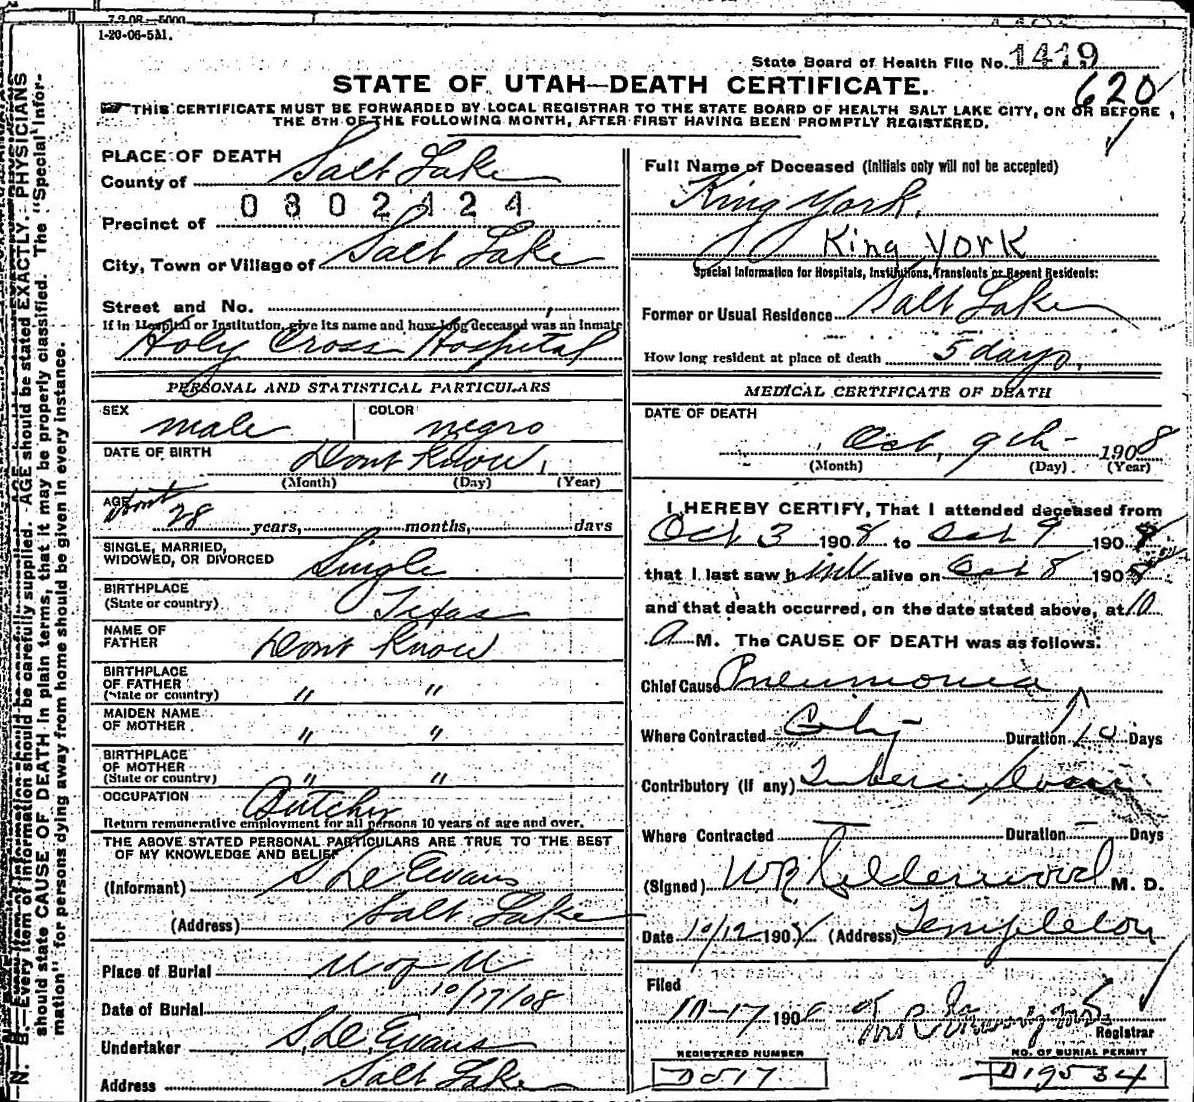 7-2-08-5000
1-20-06-5M.
State Board of Health File No. 1419
STATE OF UTAH—DEATH CERTIFICATE.
620
THIS CERTIFICATE MUST BE FORWARDED BY LOCAL REGISTRAR TO THE STATE BOARD OF HEALTH SALT LAKE CITY, ON OR BEFORE
THE 5TH OF THE FOLLOWING MONTH, AFTER FIRST HAVING BEEN PROMPTLY REGISTERED.
PLACE OF DEATH
County of Salt Lake
0302424
Precinct of
City, Town or Village of Salt Lake
Street and No.
If in Hospital or Institution, give its name and how long deceased was an Inmate
Holy Cross Hospital
PERSONAL AND STATISTICAL PARTICULARS
SEX male COLOR negro
DATE OF BIRTH Dont Know
(Month) (Day) (Year)
AGE About
28 years, months, days
SINGLE, MARRIED,
WIDOWED, OR DIVORCED Single
BIRTHPLACE
(State or country) Texas
NAME OF
FATHER Dont Know
BIRTHPLACE
OF FATHER
(State or country) " "
MAIDEN NAME
OF MOTHER " "
BIRTHPLACE
OF MOTHER
(State or country) " "
OCCUPATION Butcher
Return remunerative employment for all persons 10 years of age and over.
THE ABOVE STATED PERSONAL PARTICULARS ARE TRUE TO THE BEST
OF MY KNOWLEDGE AND BELIEF
(Informant) S De Evans
(Address) Salt Lake
Place of Burial U of U
Date of Burial 10/17/08
Undertaker S. De. Evans
Address Salt Lake
Full Name of Deceased (Initials only will not be accepted)
King York.
King York
Special Information for Hospitals, Institutions, Transients or Recent Residents:
Former or Usual Residence Salt Lake
How long resident at place of death 5 days.
MEDICAL CERTIFICATE OF DEATH
DATE OF DEATH
Oct, 9th 1908
(Month) (Day) (Year)
I HEREBY CERTIFY, That I attended deceased from
Oct 3 1908 to Oct 9 1908
that I last saw him alive on Oct 8 1908
and that death occurred, on the date stated above, at 10
A M. The CAUSE OF DEATH was as follows:
Chief Cause Pneumonia
Where Contracted City Duration 10 Days
Contributory (If any) Tuberculosis
Where Contracted — Duration — Days
(Signed) M. D.
Date 10/12 1908 (Address) Templeton
Filed
10-17 1908
Registrar
REGISTERED NUMBER
D017
NO. OF BURIAL PERMIT
D19534
N. B.—Every item of information should be carefully supplied. AGE should be stated EXACTLY. PHYSICIANS
should state CAUSE OF DEATH in plain terms, that it may be properly classified. The "Special Infor-
mation" for persons dying away from home should be given in every instance.